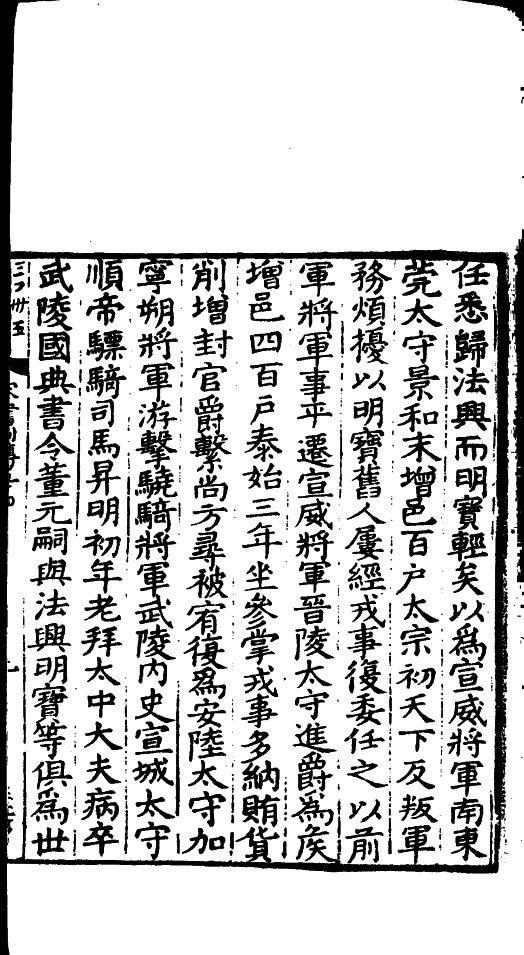 任悉歸法興而明寶輕矣以爲宣威將軍南東
莞太守景和末增邑百戶太宗初天下反叛軍
務煩擾以明寶舊人屢經戎事復委任之以前
軍將軍事平遷宣威將軍晉陵太守進爵爲侯
增邑四百戶泰始三年坐參掌戎事多納賄貨
削增封官爵繫尚方尋被宥復爲安陸太守加
寧朔將軍游擊驍騎將軍武陵內史宣城太守
順帝驃騎司馬昇明初年老拜太中大夫病卒
武陵國典書令董元嗣與法興明寶等俱爲世